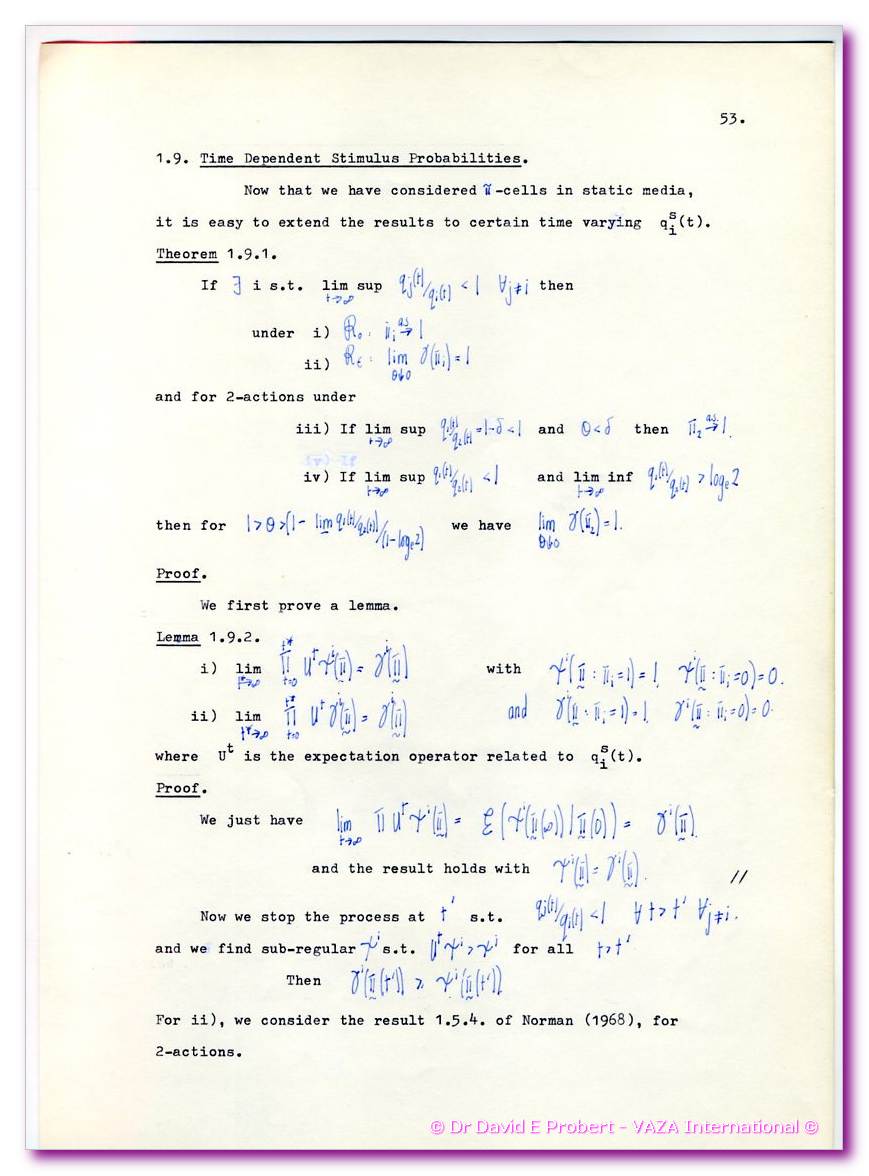 53.
1.9. Time Dependent Stimulus Probabilities.
Now that we have considered π̃-cells in static media,
it is easy to extend the results to certain time varying qᵢˢ(t).
Theorem 1.9.1.
If ∃ i s.t. lim sup t→∞ qⱼ(t)/qᵢ(t) < 1 ∀j≠i then
under i) R₀ : πᵢ →a.s. 1
ii) Rε : lim θ↓0 γ(πᵢ) = 1
and for 2-actions under
iii) If lim sup t→∞ q₁(t)/q₂(t) = 1-δ < 1 and θ < δ then π₂ →a.s. 1.
iv) If lim sup t→∞ q₁(t)/q₂(t) < 1 and lim inf t→∞ q₁(t)/q₂(t) > logₑ2
then for 1 > θ > (1 - lim q₁(t)/q₂(t))/(1-logₑ2) we have lim θ↓0 γ(π₂) = 1.
Proof.
We first prove a lemma.
Lemma 1.9.2.
i) lim t*→∞ Π t=0 t* Uᵗ ψⁱ(π) = γⁱ(π) with ψⁱ(π : πᵢ=1) = 1, ψⁱ(π : πᵢ=0) = 0.
ii) lim t*→∞ Π t=0 t* Uᵗ γⁱ(π) = γⁱ(π) and γⁱ(π : πᵢ=1) = 1, γⁱ(π : πᵢ=0) = 0.
where Uᵗ is the expectation operator related to qᵢˢ(t).
Proof.
We just have lim t→∞ Π Uᵗ ψⁱ(π) = E(ψⁱ(π(∞)) | π(0)) = γⁱ(π)
and the result holds with ψⁱ(π) = γⁱ(π). //
Now we stop the process at t' s.t. qⱼ(t)/qᵢ(t) < 1 ∀ t > t' ∀j≠i.
and we find sub-regular ψⁱ s.t. Uᵗψⁱ > ψⁱ for all t > t'
Then γⁱ(π(t')) ≥ ψⁱ(π(t'))
For ii), we consider the result 1.5.4. of Norman (1968), for
2-actions.
© Dr David E Probert – VAZA International ©